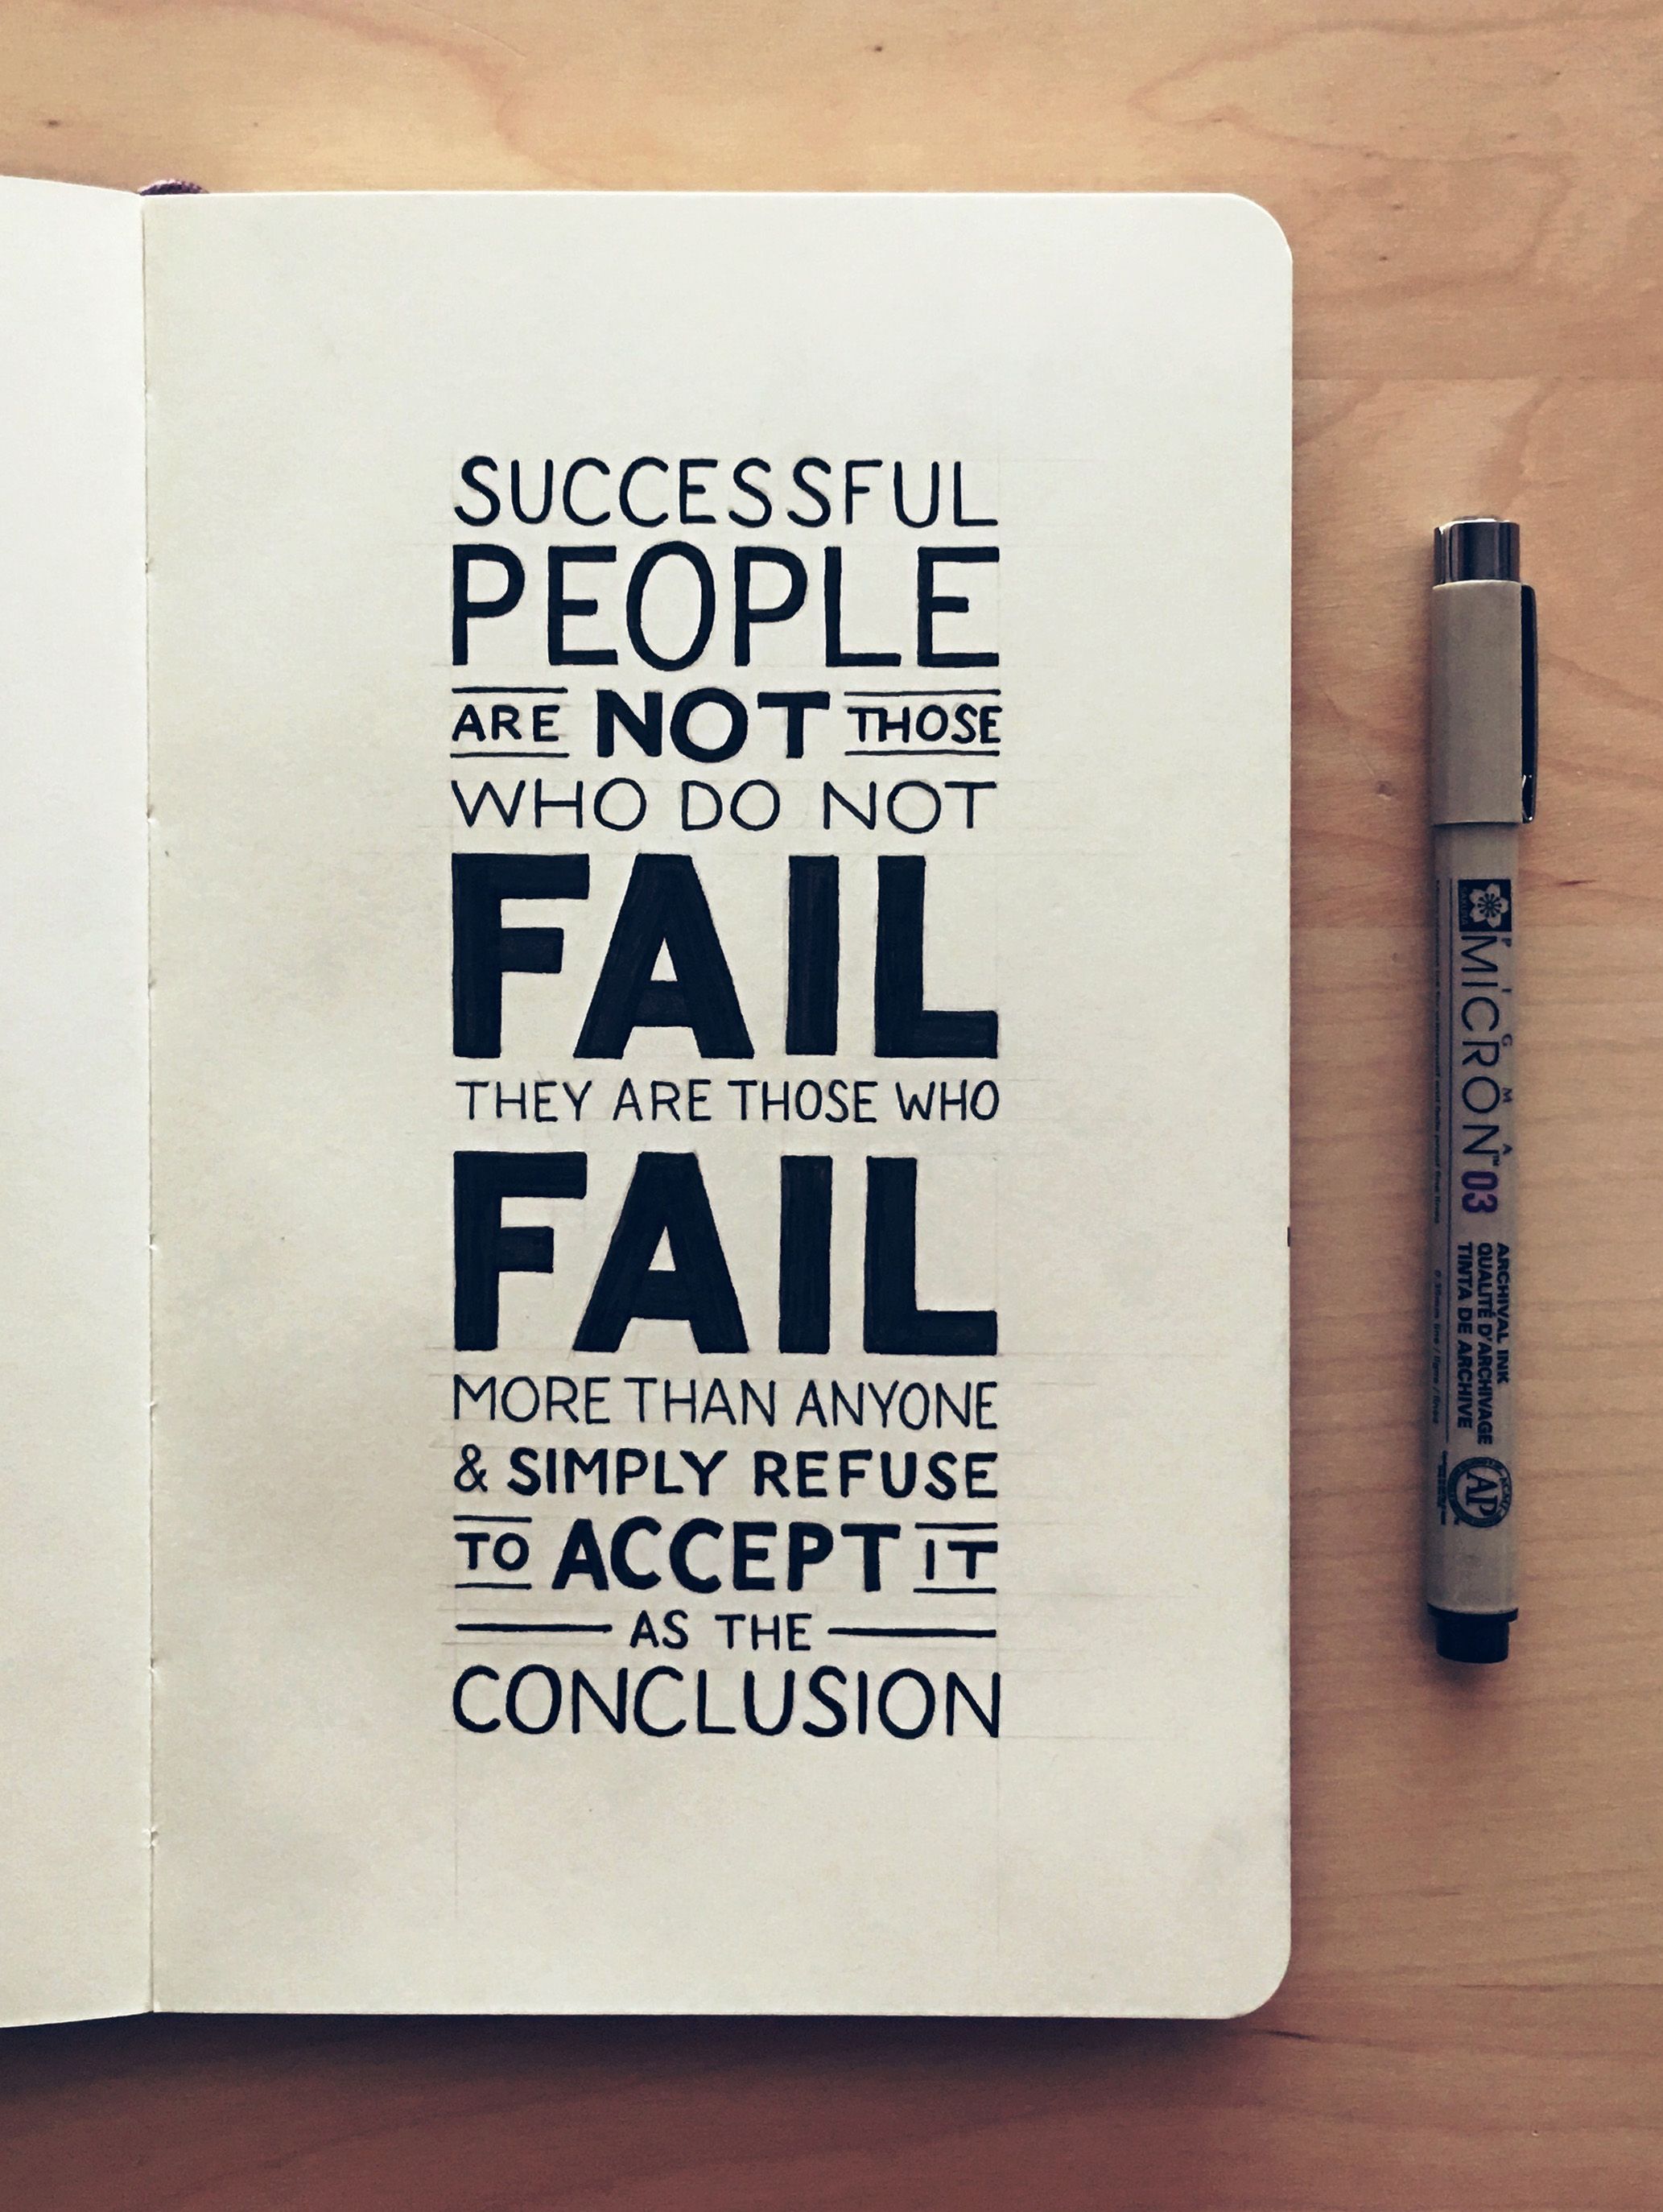 SUCCESSFUL
PEOPLE
ARE NOT THOSE
WHO DO NOT
FAIL
THEY ARE THOSE WHO
FAIL
MORE THAN ANYONE
& SIMPLY REFUSE
TO ACCEPT IT
AS THE
CONCLUSION
PIGMA
MICRON™ 03
ARCHIVAL INK
QUALITÉ D'ARCHIVAGE
TINTA DE ARCHIVE
AP